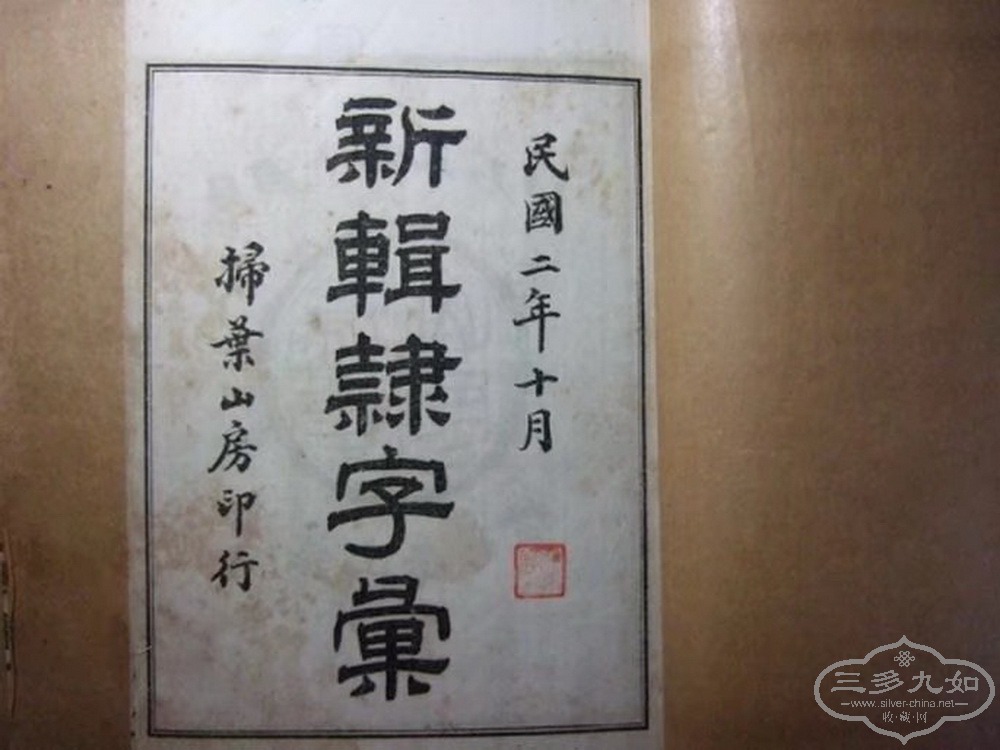 民國二年十月
新輯隸字彙
掃葉山房印行
三多九如
www.silver-china.net
收·藏·网